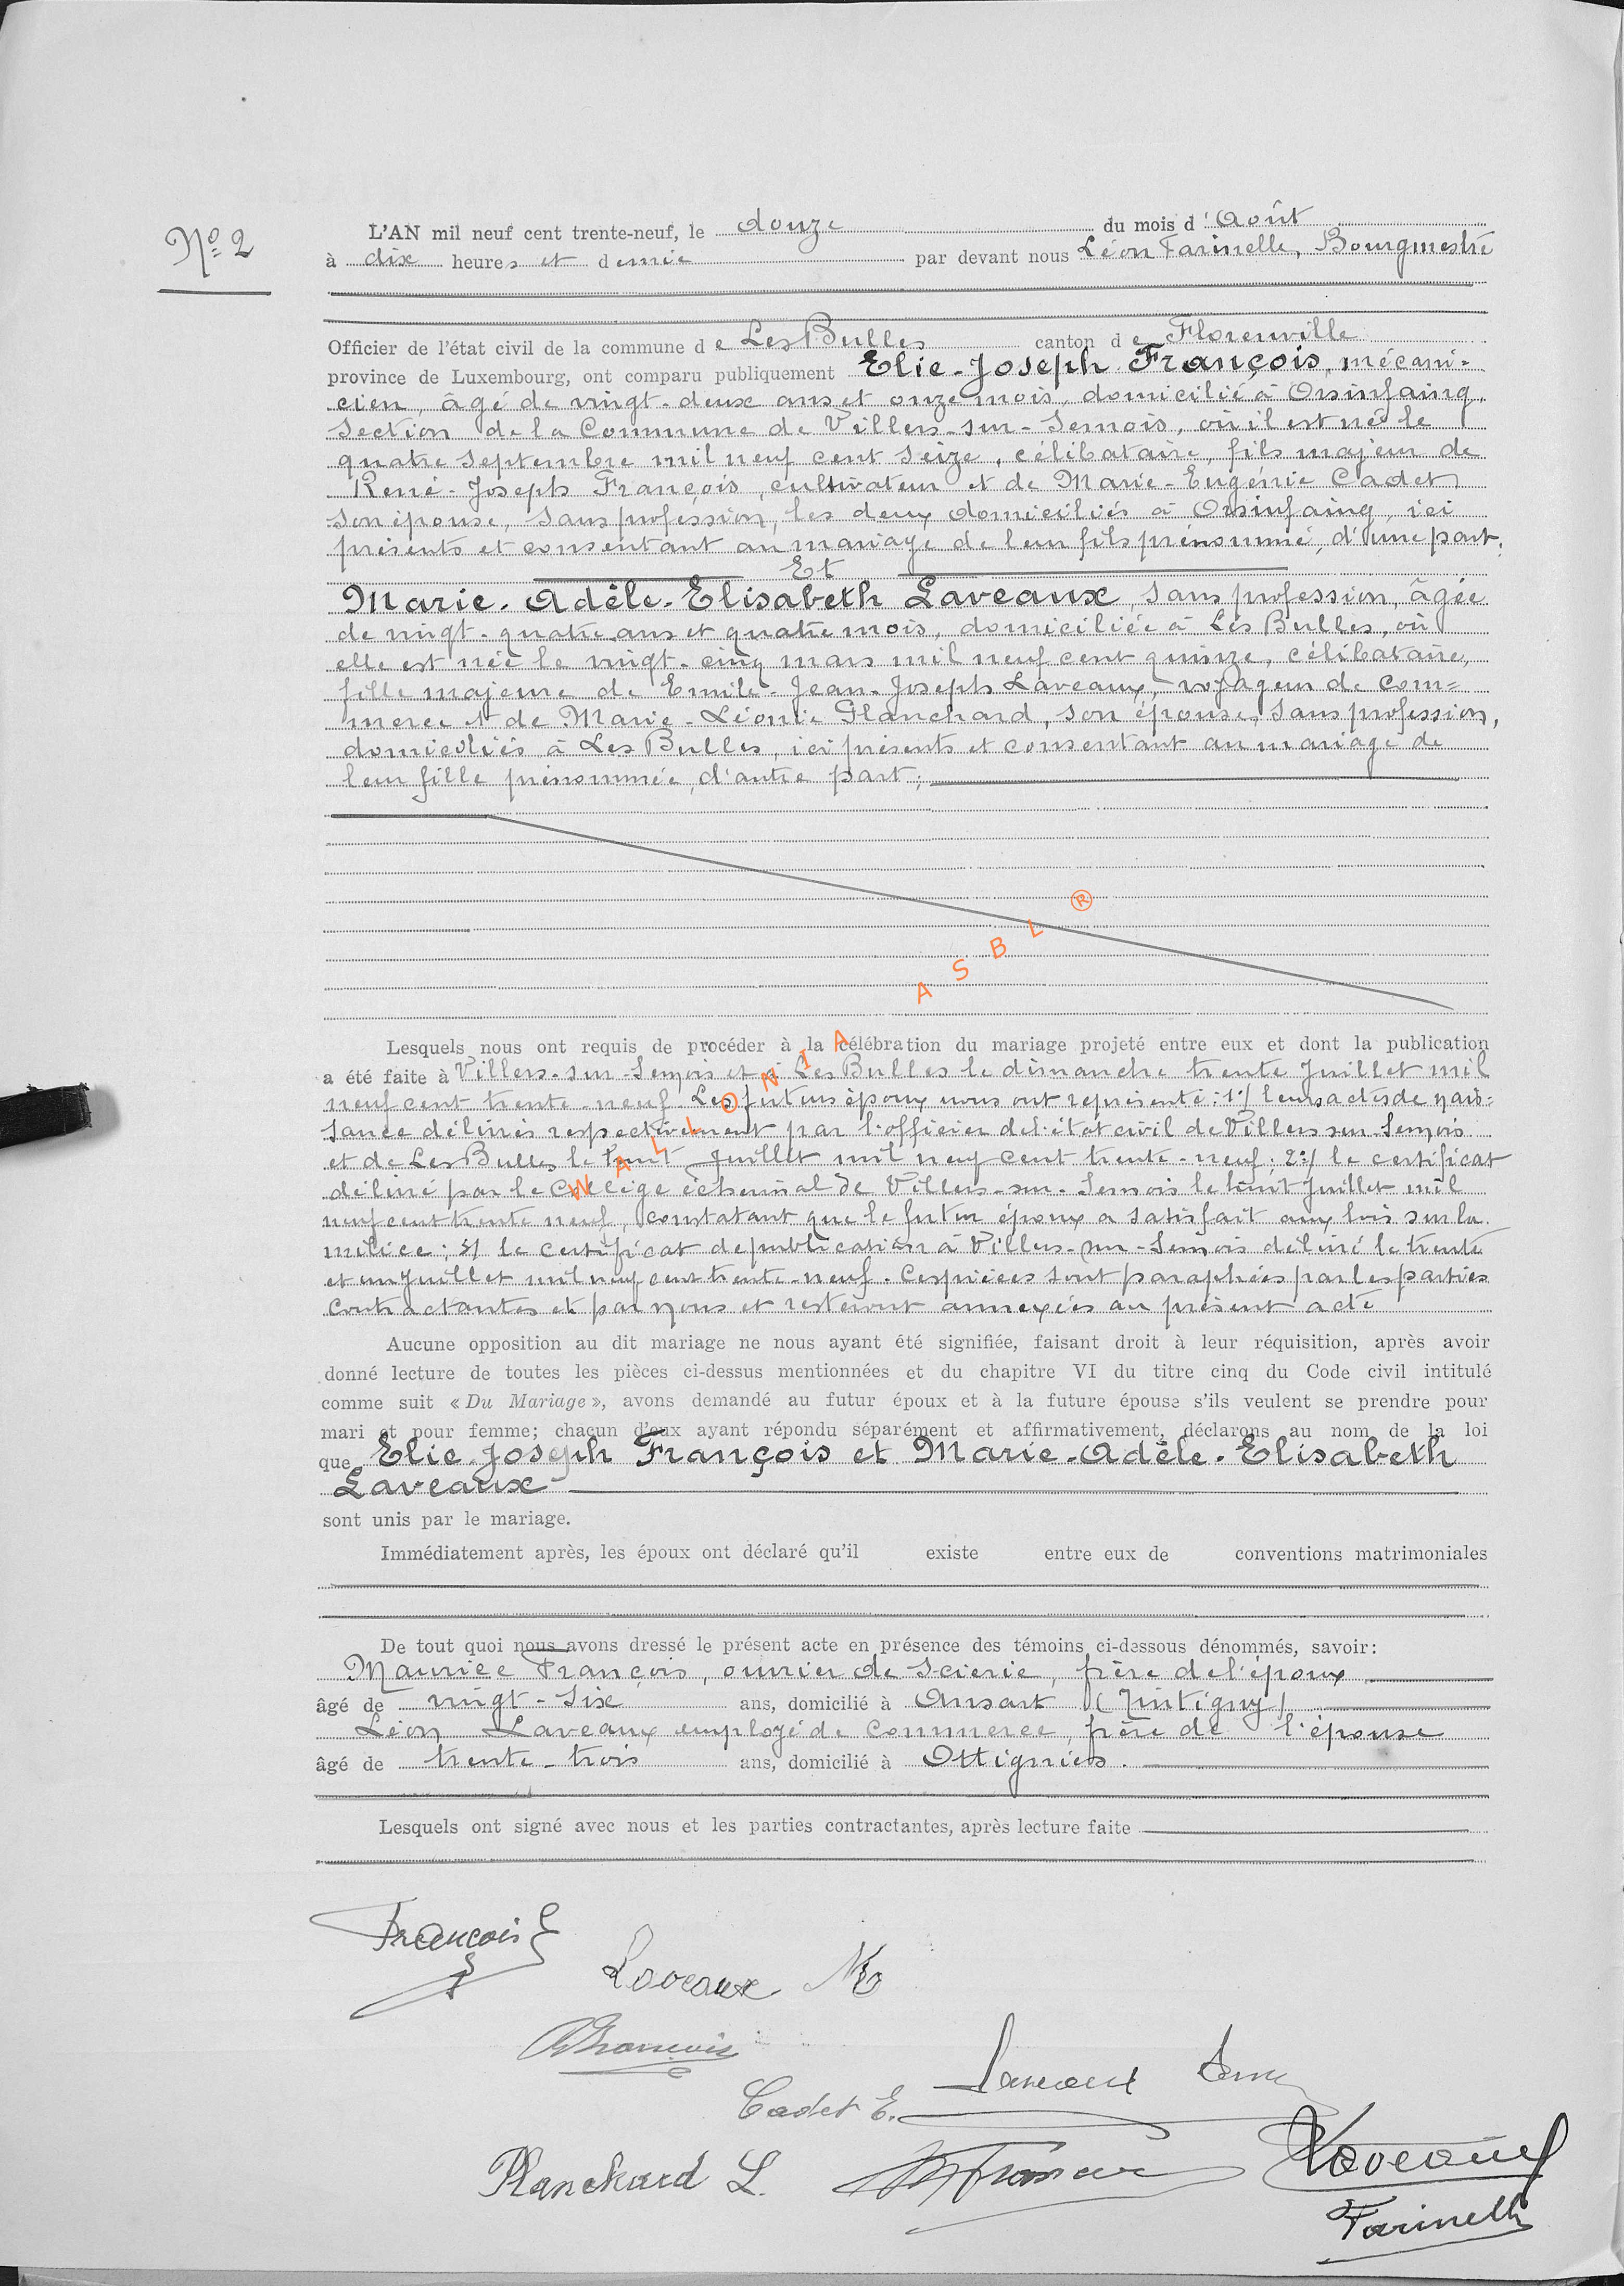 Nº 2
L'AN mil neuf cent trente-neuf, le douze du mois d'Août
à dix heures et demie par devant nous Léon Farinelle, Bourgmestre
Officier de l'état civil de la commune de Les Bulles canton de Florenville
province de Luxembourg, ont comparu publiquement Elie-Joseph François, mécani-
cien, âgé de vingt-deux ans et onze mois, domicilié à Orsinfaing,
Section de la Commune de Villers-sur-Semois, où il est né le
quatre Septembre mil neuf cent seize, célibataire, fils majeur de
René-Joseph François, cultivateur et de Marie-Eugénie Cadet
son épouse, sans profession, les deux domiciliés à Orsinfaing, ici
présents et consentant au mariage de leur fils prénommé, d'une part.
Et
Marie-Adèle-Elisabeth Laveaux, sans profession, âgée
de vingt-quatre ans et quatre mois, domiciliée à Les Bulles, où
elle est née le vingt-cinq mars mil neuf cent quinze, célibataire,
fille majeure de Emile-Jean-Joseph Laveaux, voyageur de com=
merce et de Marie-Léonie Planchard, son épouse, sans profession,
domiciliés à Les Bulles, ici présents et consentant au mariage de
leur fille prénommée, d'autre part;
WALLONIA ASBL ®
Lesquels nous ont requis de procéder à la célébration du mariage projeté entre eux et dont la publication
a été faite à Villers-sur-Semois et à Les Bulles le dimanche trente Juillet mil
neuf cent trente-neuf. Les futurs époux nous ont représenté: 1º/ leurs actes de nais=
sance délivrés respectivement par l'officier de l'état civil de Villers sur Semois
et de Les Bulles le huit Juillet mil neuf cent trente-neuf; 2º/ le certificat
délivré par le Collège échevinal de Villers-sur-Semois le huit Juillet mil
neuf cent trente neuf, constatant que le futur époux a satisfait aux lois sur la
milice; 3/ le certificat de publication à Villers-sur-Semois délivré le trente
et un Juillet mil neuf cent trente-neuf. Ces pièces sont paraphées par les parties
contractantes et par nous et resteront annexées au présent acte
Aucune opposition au dit mariage ne nous ayant été signifiée, faisant droit à leur réquisition, après avoir
donné lecture de toutes les pièces ci-dessus mentionnées et du chapitre VI du titre cinq du Code civil intitulé
comme suit « Du Mariage », avons demandé au futur époux et à la future épouse s'ils veulent se prendre pour
mari et pour femme; chacun d'eux ayant répondu séparément et affirmativement, déclarons au nom de la loi
que Elie-Joseph François et Marie-Adèle-Elisabeth
Laveaux
sont unis par le mariage.
Immédiatement après, les époux ont déclaré qu'il existe entre eux de conventions matrimoniales
De tout quoi nous avons dressé le présent acte en présence des témoins ci-dessous dénommés, savoir:
Maurice François, ouvrier de scierie, frère de l'époux
âgé de vingt-six ans, domicilié à Ansart (Tintigny)
Léon Laveaux employé de commerce, frère de l'épouse
âgé de trente-trois ans, domicilié à Ottignies.
Lesquels ont signé avec nous et les parties contractantes, après lecture faite
François E
Laveaux
François
Laveaux
Cadet E.
Planchard L.
François
Laveaux
Farinelle